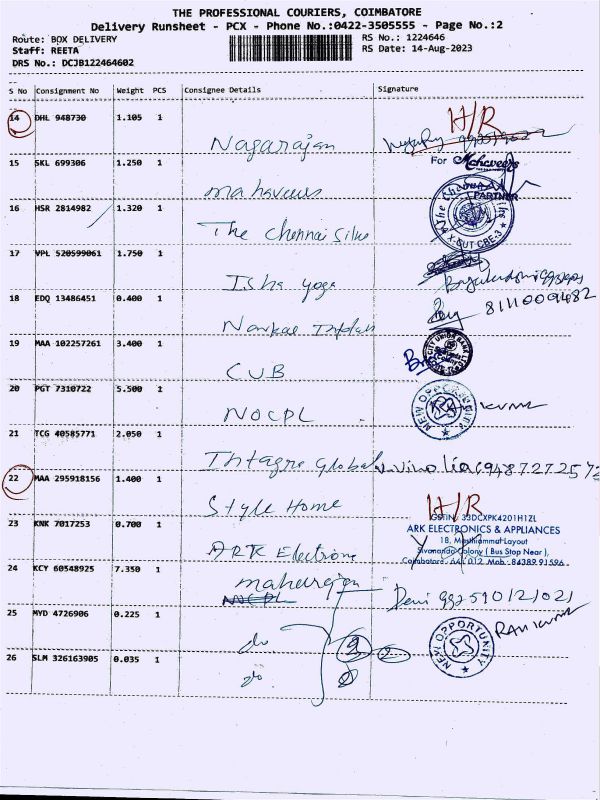 THE PROFESSIONAL COURIERS, COIMBATORE
Delivery Runsheet - PCX - Phone No.:0422-3505555 - Page No.:2
Route: BOX DELIVERY RS No.: 1224646
Staff: REETA RS Date: 14-Aug-2023
DRS No.: DCJB122464602
S No Consignment No Weight PCS Consignee Details Signature
14 DHL 948730 1.105 1 H/R
Nagarajan
15 SKL 699306 1.250 1 For Mahaveers
mahaveers PARTNER
16 HSR 2814982 1.320 1
The Chennai Silks X-CUT CBE-3
17 VPL 520599061 1.750 1
Isha yoga
18 EDQ 13486451 0.400 1 8111000982
19 MAA 102257261 3.400 1 CITY UNION BANK
CUB
20 PGT 7310722 5.500 1 NEW OPPORTUNITY
NOCPL
21 TCG 40585771 2.050 1
Global
22 MAA 295918156 1.400 1
Style Home H/R
23 KNK 7017253 0.700 1 GSTIN: 33DCXPK4201H1ZL
ARK ELECTRONICS & APPLIANCES
ARK Electronic 18, Layout
Sivananda Colony ( Bus Stop Near ),
24 KCY 60548925 7.350 1 Coimbatore - 641 012. Mob : 84389 91596
maharajan
NOCPL
25 MYD 4726906 0.225 1 NEW OPPORTUNITY
do
26 SLM 326163905 0.035 1 2
do